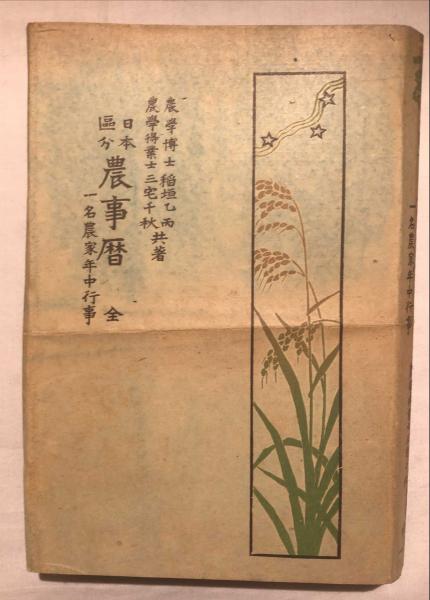 農學博士 稲垣乙丙
農學得業士 三宅千秋 共著
日本
區分
農事暦 全
一名農家年中行事
一名農家年中行事